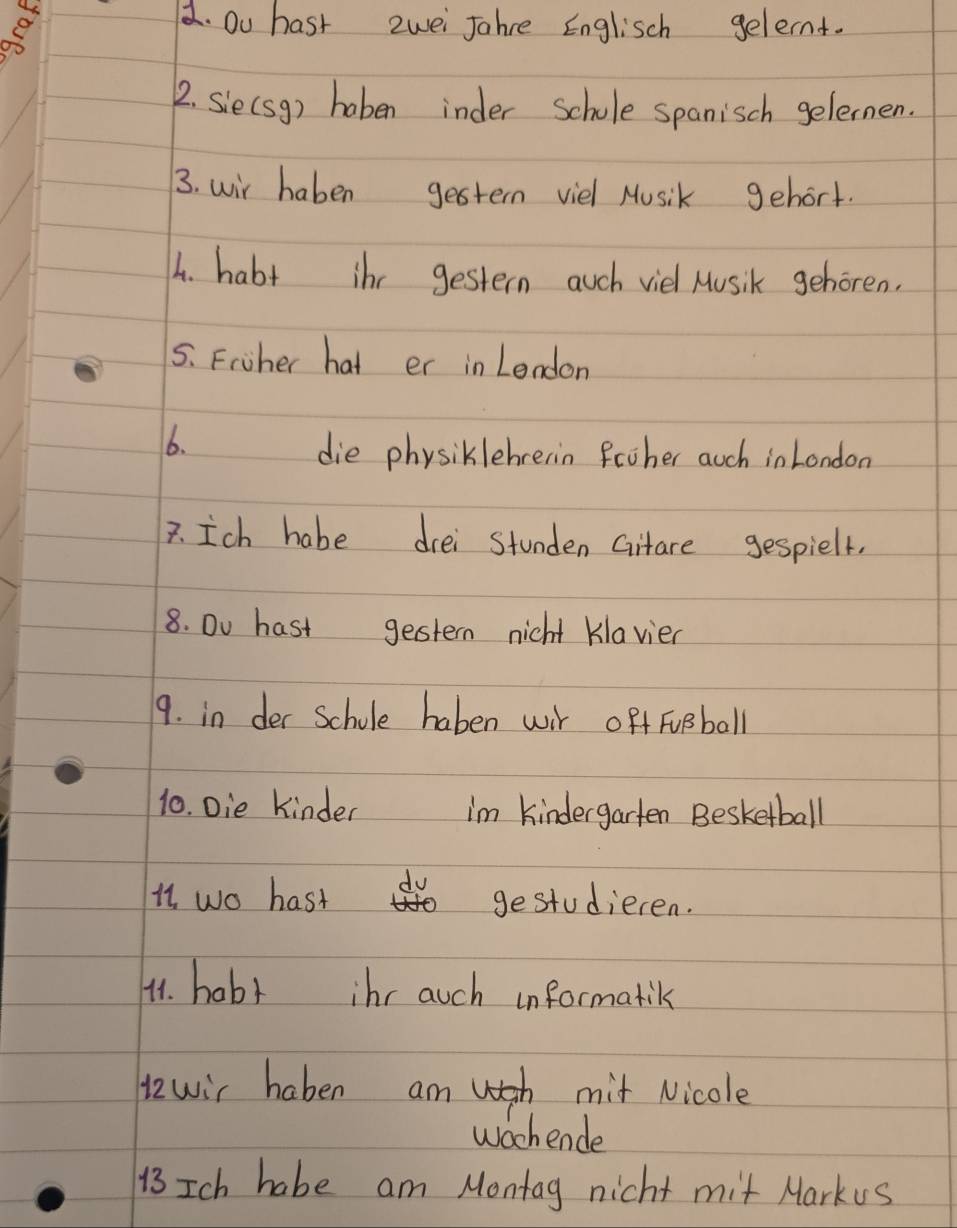 1. Du hast zwei Jahre Englisch gelernt.
2. Sie(sg) haben inder Schule Spanisch gelernen.
3. wir haben gestern viel Musik gehört.
4. habt ihr gestern auch viel Musik gehören.
5. Früher hat er in London
6. die physiklehrerin früher auch in London
7. Ich habe drei Stunden Gitare gespielt.
8. Du hast gestern nicht Klavier
9. in der Schule haben wir oft Fußball
10. Die Kinder im Kindergarten Besketball
11. wo hast du gestudieren.
11. habt ihr auch informatik
12 wir haben am mit Nicole
Wochende
13 Ich habe am Montag nicht mit Markus